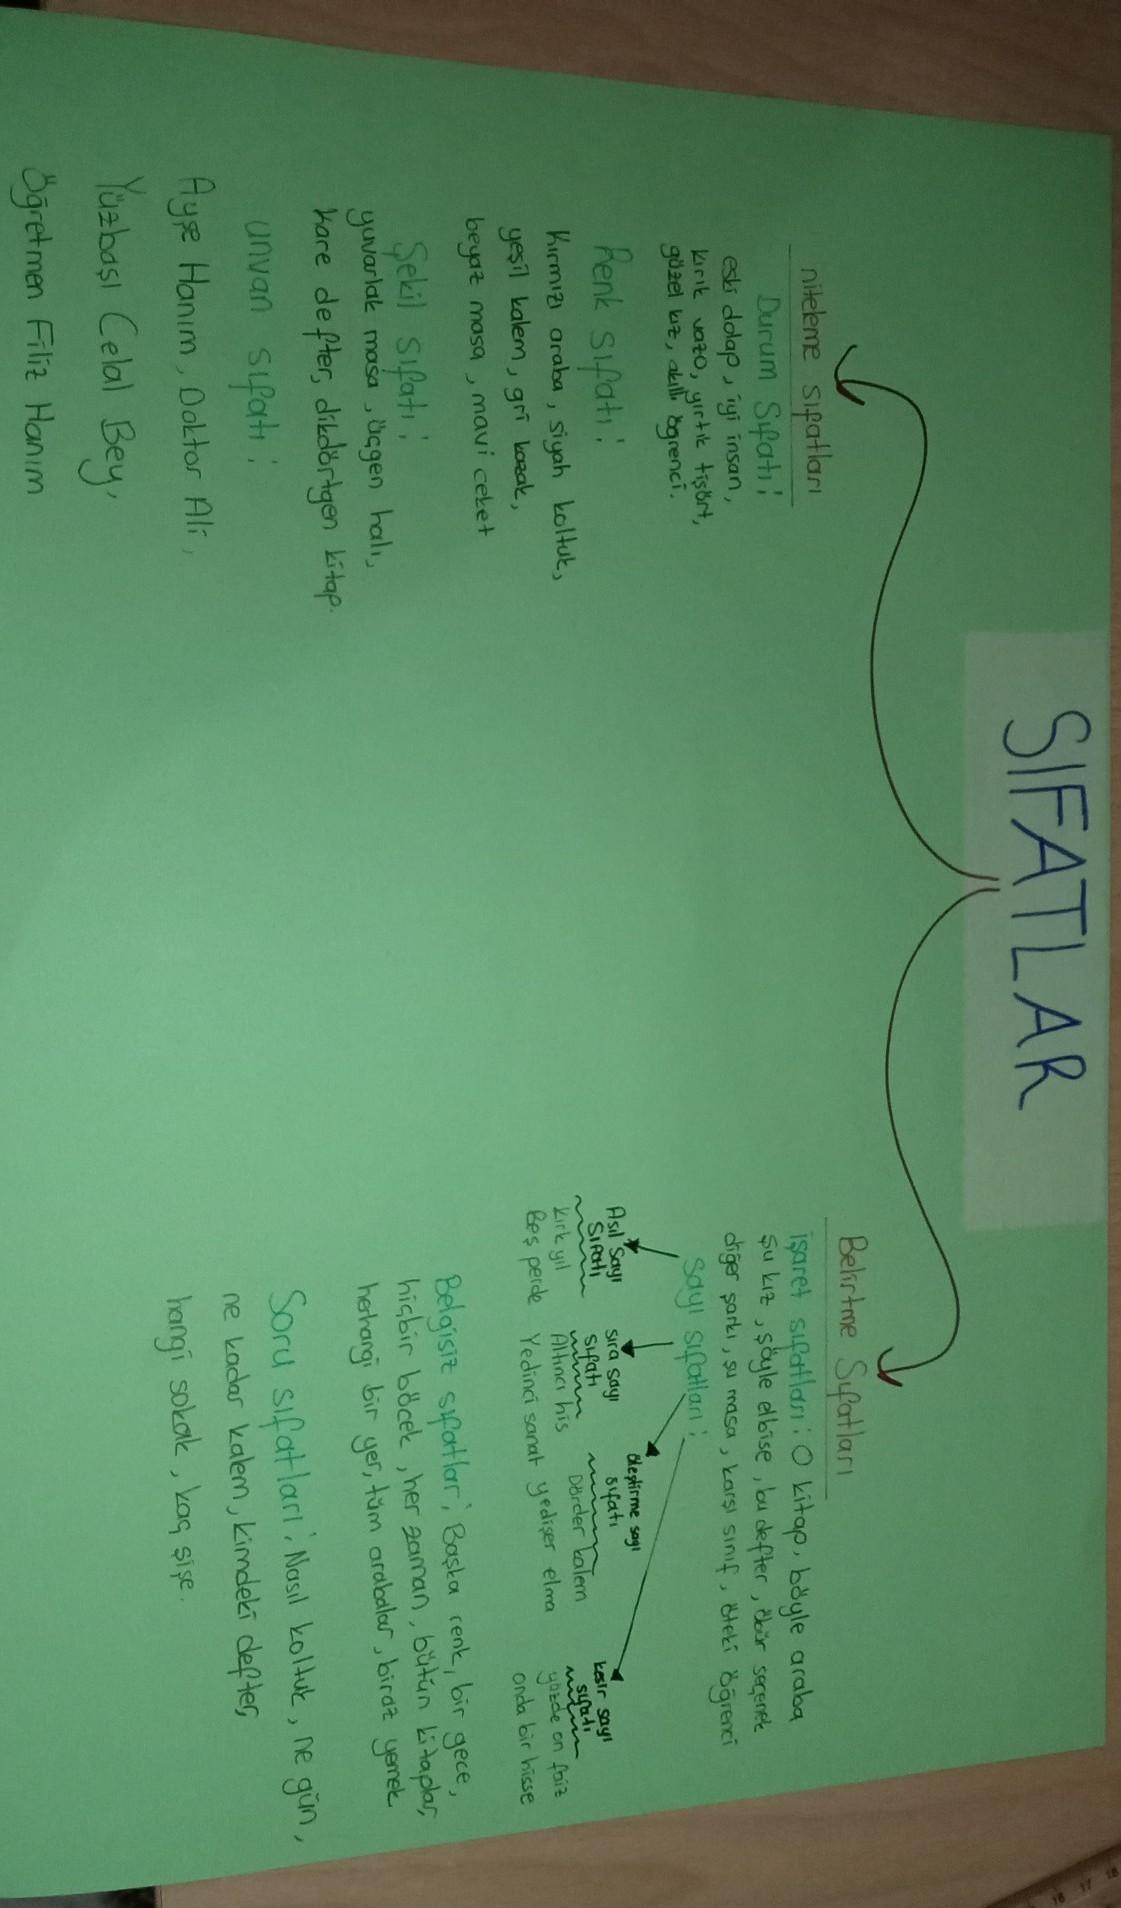 SIFATLAR
niteleme sıfatları
Durum Sıfatı:
eski dolap, iyi insan,
kırık vazo, yırtık tişört,
güzel kız, akıllı öğrenci.
Renk Sıfatı:
Kırmızı araba, siyah koltuk,
yeşil kalem, gri kazak,
beyaz masa, mavi ceket
Şekil sıfatı:
yuvarlak masa, üçgen halı,
kare defter, dikdörtgen kitap.
unvan sıfatı:
Ayşe Hanım, Doktor Ali,
Yüzbaşı Celal Bey,
Öğretmen Filiz Hanım
Belirtme Sıfatları
işaret sıfatları: O kitap, böyle araba
şu kız, şöyle elbise, bu defter, öbür seçenek
diğer şarkı, şu masa, karşı sınıf, öteki öğrenci
Sayı sıfatları:
Asıl Sayı
Sıfatı
kırk yıl
Beş perde
sıra sayı
sıfatı
Altıncı his
Yedinci sanat
üleştirme sayı
sıfatı
Dörder kalem
yedişer elma
kesir sayı
sıfatı
yüzde on faiz
onda bir hisse
Belgisiz sıfatlar: Başka renk, bir gece,
hiçbir böcek, her zaman, bütün kitaplar,
herhangi bir yer, tüm arabalar, biraz yemek.
Soru sıfatları: Nasıl koltuk, ne gün,
ne kadar kalem, kimdeki defter,
hangi sokak, kaç şişe.
16 17 18